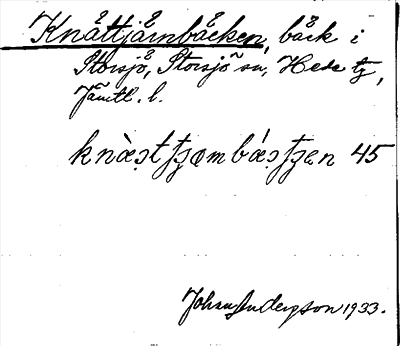 Knättjärnbäcken, bäck i
Storsjö, Storsjö sn, Hede tg,
Jämtl. l.
knæ̀ʂtʃɶmbǽʂʃen 45
Johan Anderson 1933.